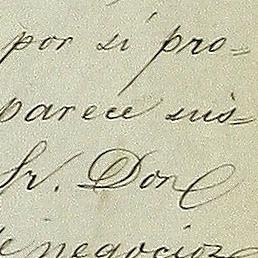 por sí pro=
parece sus=
Sr. Don
de negocios